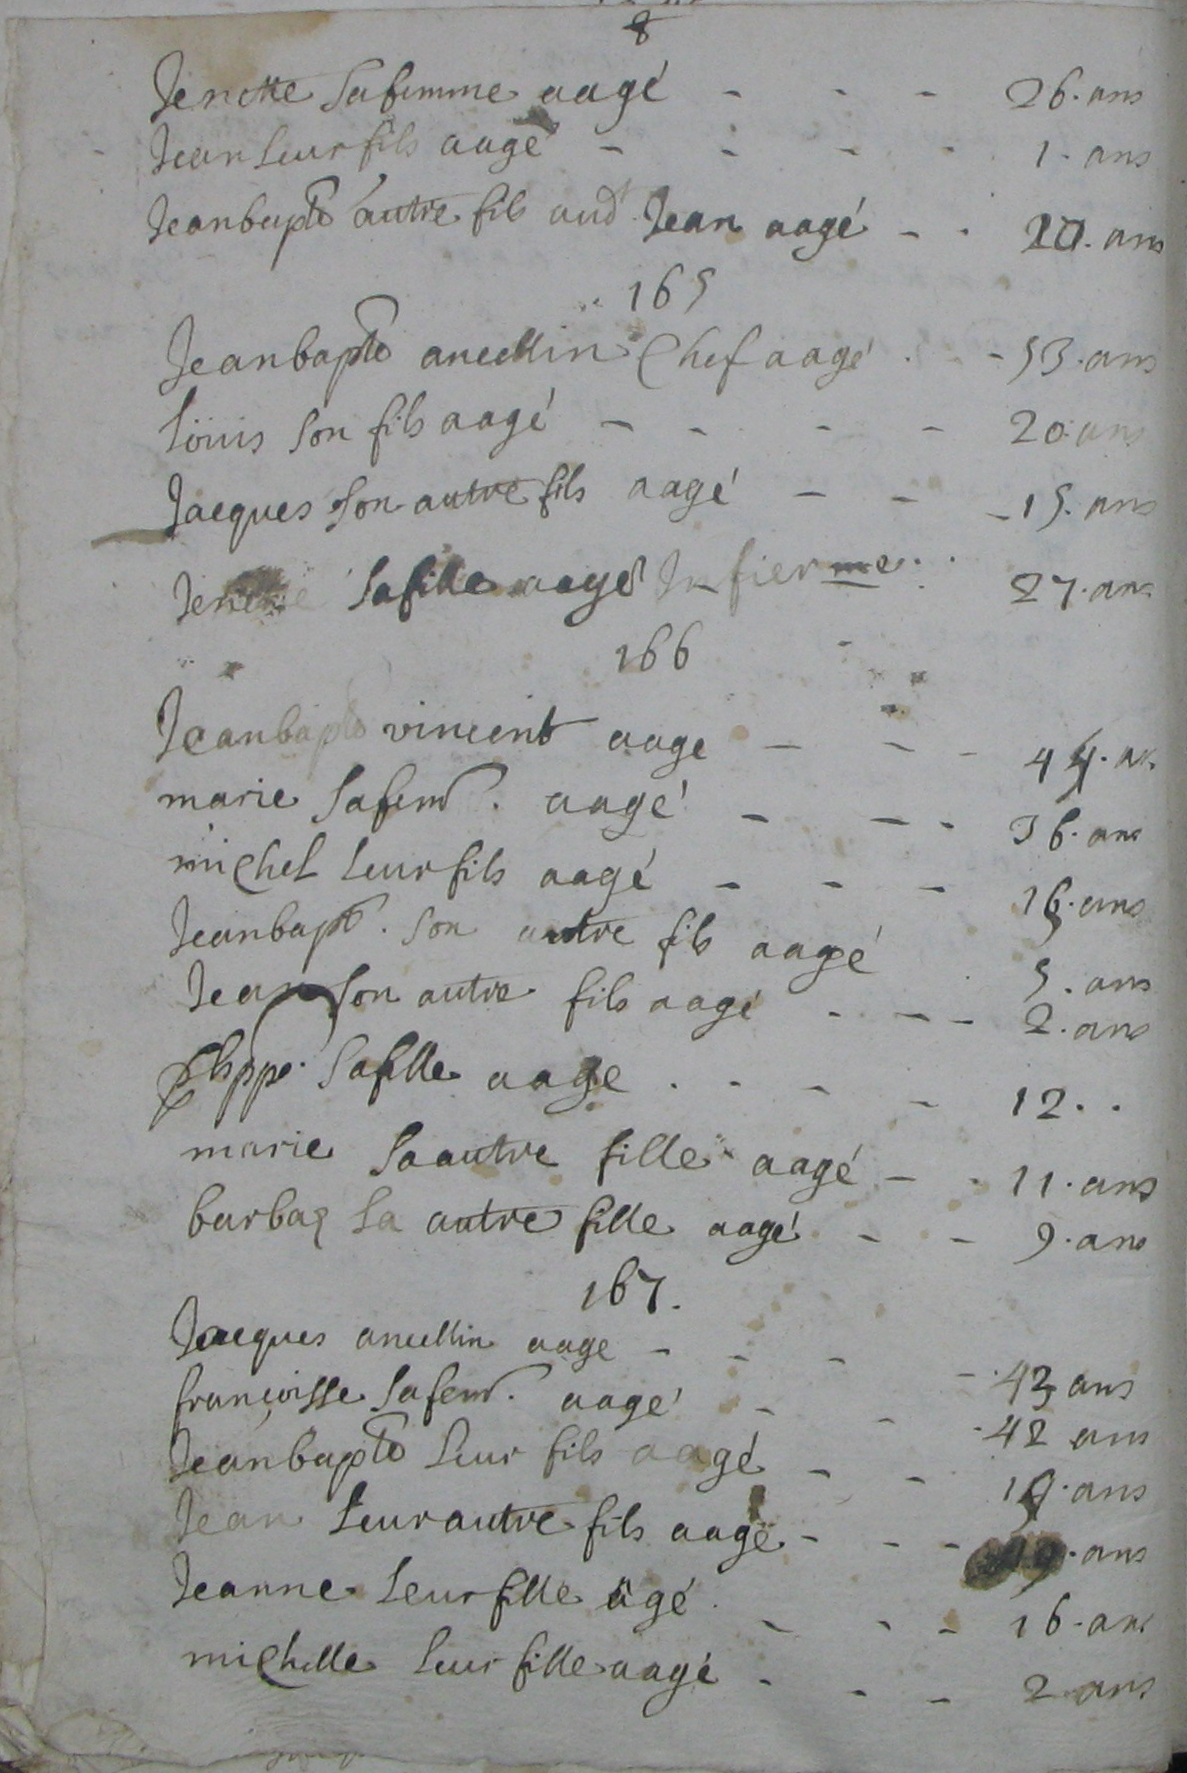 8
Jenette sa femme aagé - - - 26. ans
Jean leur fils aagé - - - - 1. ans
Jeanbapte autre fils aud Jean aagé - - 20. ans
165
Jeanbapte ancellin Chef aagé - - 53. ans
loüis son fils aagé - - - - 20. ans
Jacques son autre fils aagé - - - 15. ans
sa fille aagé Infierme. . 27. ans
166
Jeanbapte vincent aagé - - - 44. ans
marie sa fem. aagé - - - 36. ans
michel leur fils aagé - - - 16. ans
Jeanbapt. son autre fils aagé 5. ans
Jean son autre fils aagé . - - - 2. ans
phppe. sa fille aage . - - - 12. .
marie sa autre fille aagé - - 11. ans
barbaz la autre fille aagé - - 9. ans
167.
Jacques ancellin aage - - - - 43 ans
françoisse sa fem. aagé - - - 42 ans
Jeanbapte leur fils aagé - - 19. ans
Jean leur autre fils aagé - - - ans
Jeanne leur fille agé - - - 16. ans
michelle leur fille aagé - - - 2 ans